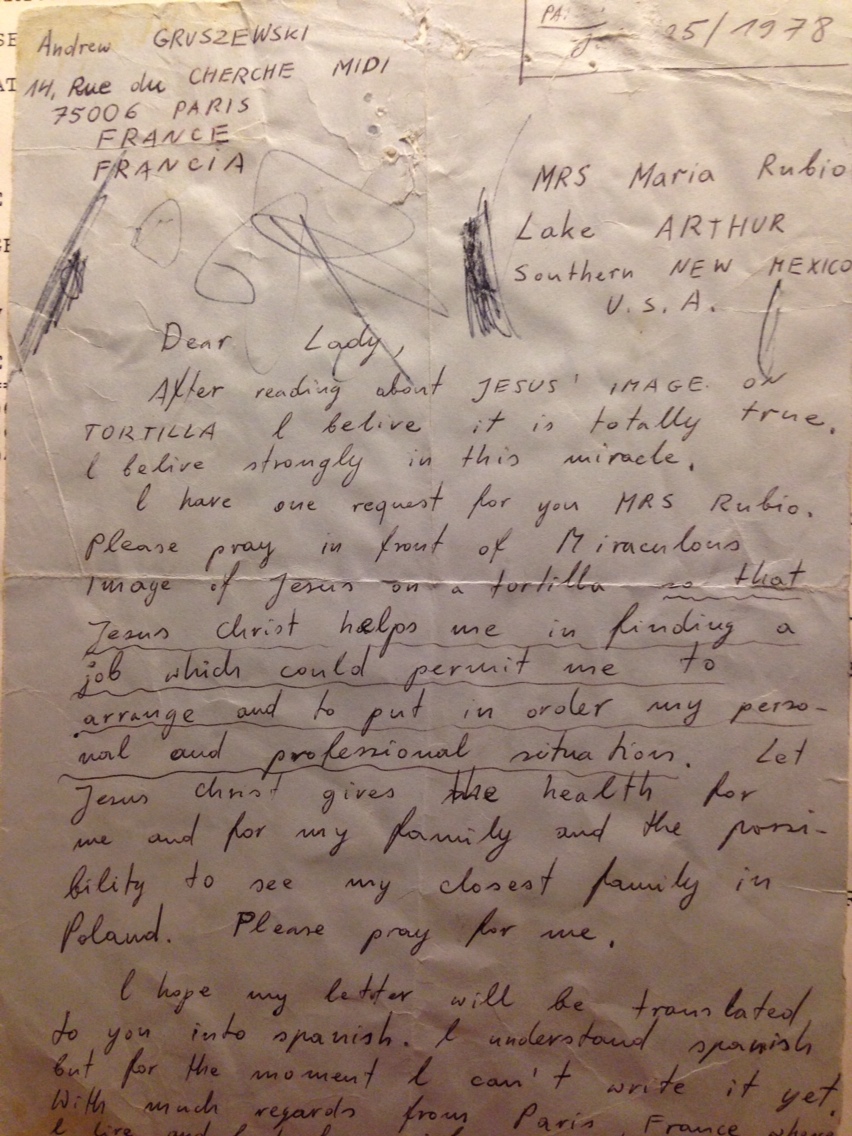 Andrew GRUSZEWSKI
14, Rue du CHERCHE MIDI
75006 PARIS
FRANCE
FRANCIA
25/1978
MRS Maria Rubio
Lake ARTHUR
Southern NEW MEXICO
U.S.A.
Dear Lady,
After reading about JESUS' IMAGE ON
TORTILLA I belive it is totally true.
I belive strongly in this miracle.
I have one request for you MRS Rubio.
Please pray in front of Miraculous
Image of Jesus on a tortilla so that
Jesus Christ helps me in finding a
job which could permit me to
arrange and to put in order my perso-
nal and professional situation. Let
Jesus Christ gives the health for
me and for my family and the possi-
bility to see my closest family in
Poland. Please pray for me.
I hope my letter will be translated
to you into spanish. I understand spanish
but for the moment I can't write it yet.
With much regards from Paris, France where
I live and I